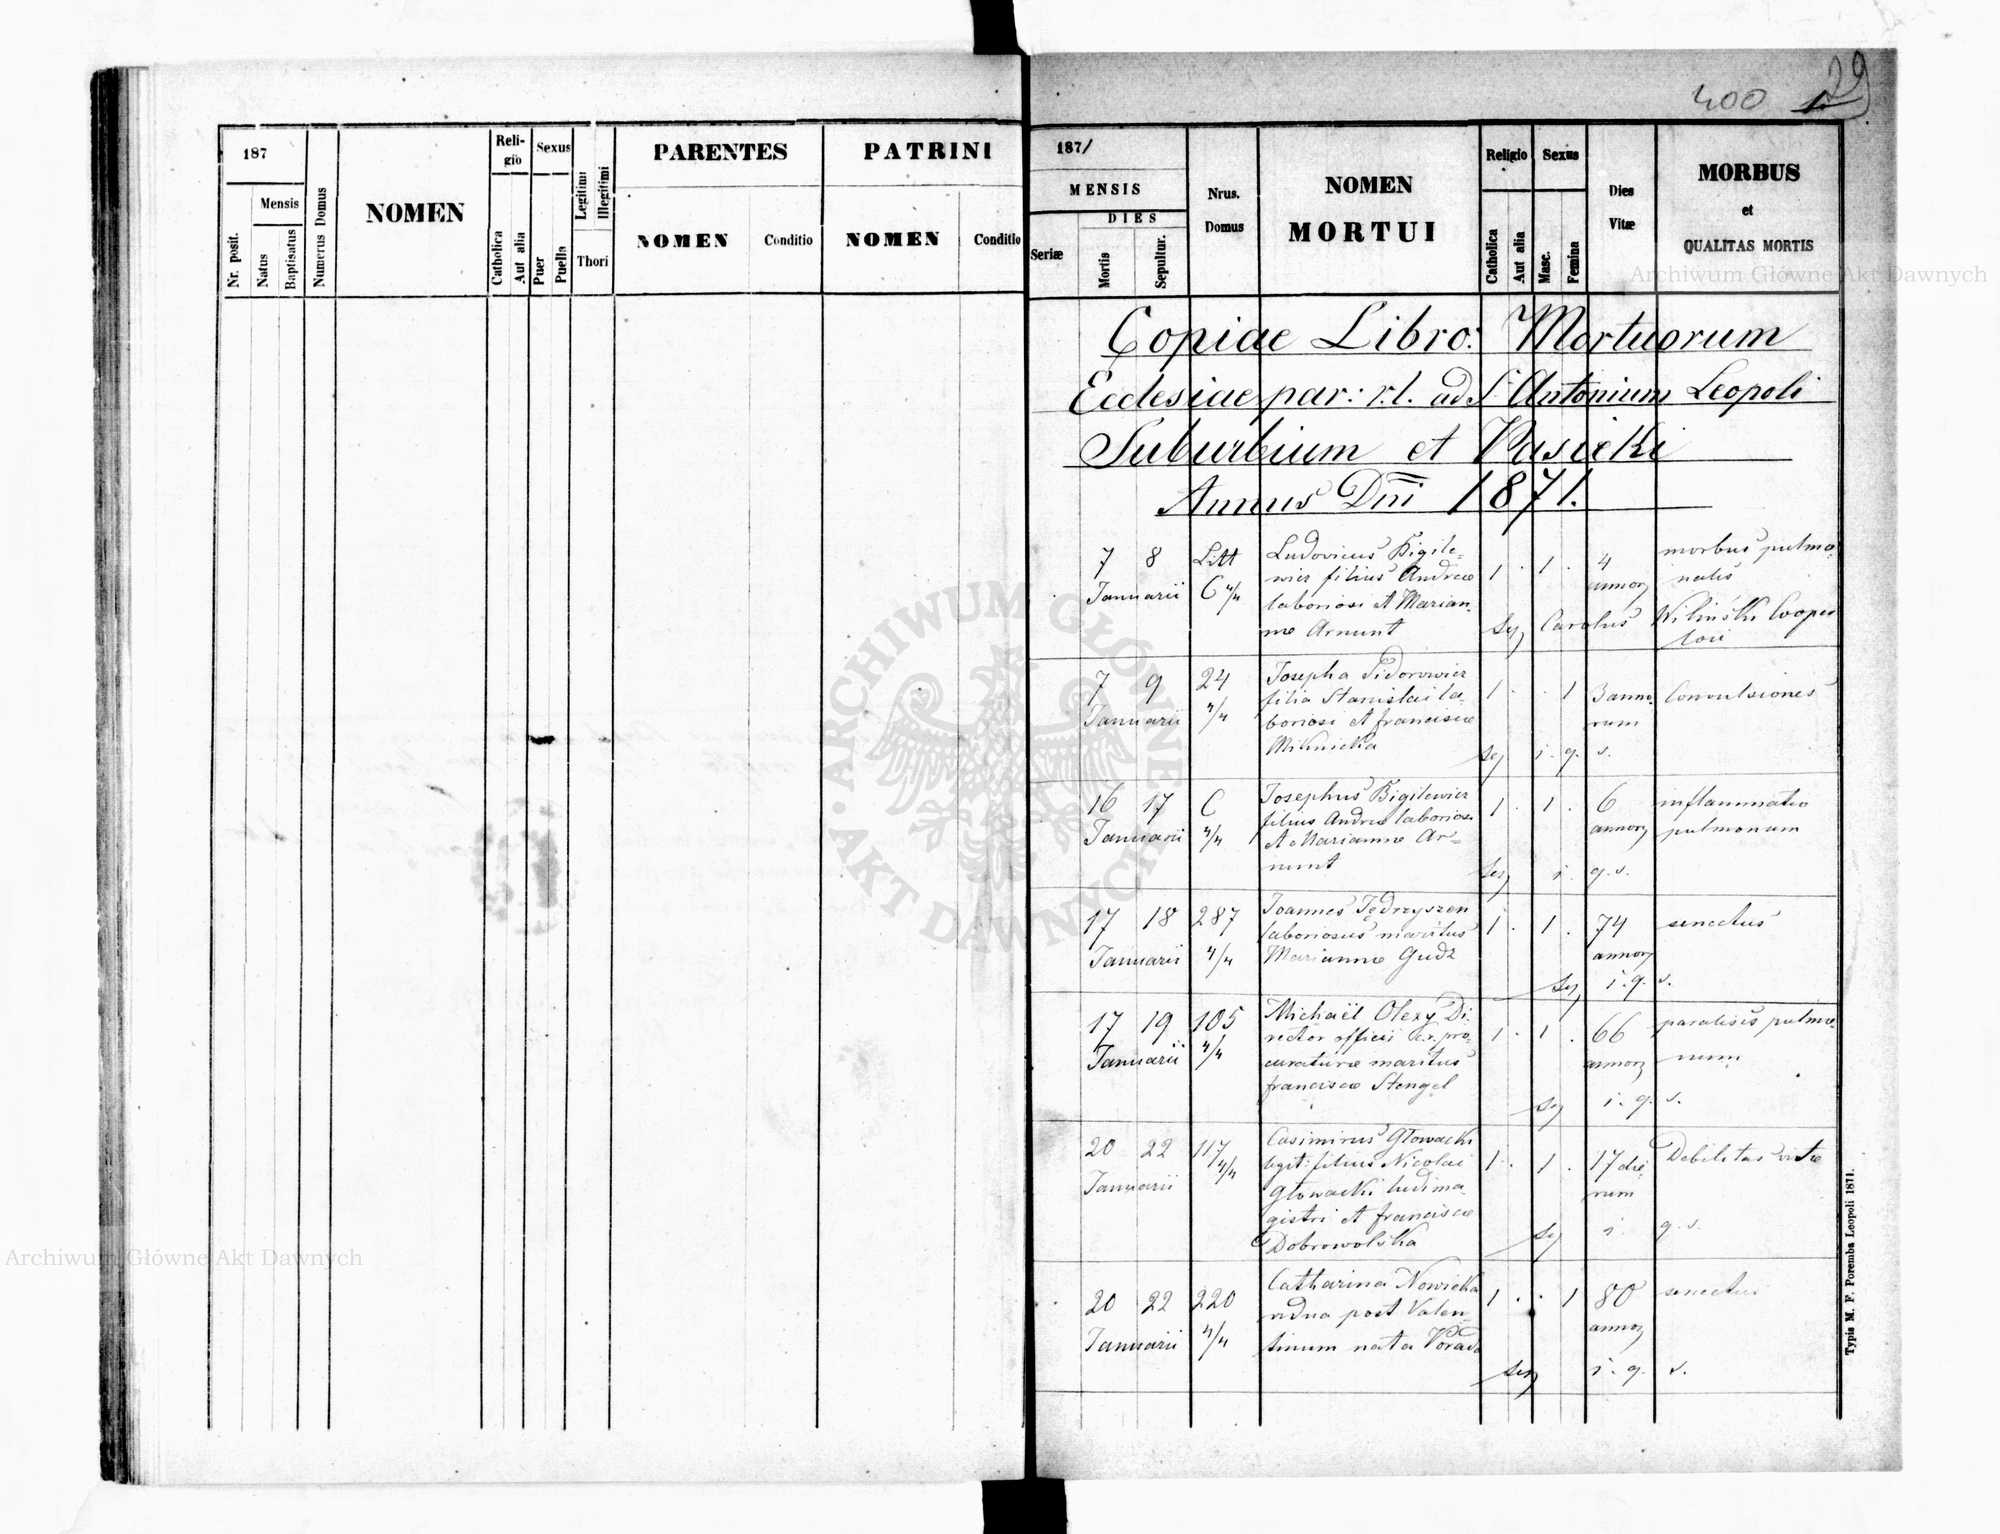 187
Nr. posit.
Mensis
Natus
Baptisatus
Numerus Domus
NOMEN
Reli-
gio
Catholica
Aut alia
Sexus
Puer
Puella
Legitimi
Illegitimi
Thori
PARENTES
NOMEN
Conditio
PATRINI
NOMEN
Conditio
400
29
1871
MENSIS
Seriæ
DIES
Mortis
Sepultur.
Nrus.
Domus
NOMEN
MORTUI
Religio
Catholica
Aut alia
Sexus
Masc.
Femina
Dies
Vitæ
MORBUS
et
QUALITAS MORTIS
Copiae Libro: Mortuorum
Ecclesiae par: r.l. ad S. Antonium Leopoli
Suburbium et Pasieki
Annus Dni 1871.
7 8 Litt
Januarii C 4/4
Ludovicus Bigile-
wicz filius Andreæ
laboriosi et Marian-
næ Armunt
1 . 1 . 4
annor
morbus pulmo-
nalis
Sep Carolus Wiliński Coope-
tori
7 9 24
Januarii 4/4
Josepha Sidorowicz
filia Stanislai la-
boriosi et franciscæ
Milnicka
1 . . 1 3 anno-
rum
Convulsiones
Sep i. q. s.
16 17 C
Januarii 4/4
Josephus Bigilewicz
filius Andreæ laboriosi
et Mariannæ Ar-
munt
1 . 1 . 6
annor
inflammatio
pulmonum
Sep i. q. s.
17 18 287
Januarii 4/4
Joannes Jędrzyszen
laboriosus maritus
Mariannæ Gudz
1 . 1 . 74
annor
senectus
Sep i. q. s.
17 19 105
Januarii 4/4
Michaël Olexy Di-
rector officii c.r. pro-
curaturæ maritus
franciscæ Stengel
1 . 1 . 66
annor
paralisis pulmo-
num
Sep i. q. s.
20 22 117
Januarii 4/4
Casimirus Głowacki
legit: filius Nicolai
Głowacki ludima-
gistri et franciscæ
Dobrowolska
1 . 1 . 17 die-
rum
Debilitas vitæ
Sep i. q. s.
20 22 220
Januarii 4/4
Catharina Nowicka
vidua post Valen
tinum nata
1 . . 1 80
annor
senectus
Sep i. q. s.
Typis M. F. Poremba Leopoli 1871.
Archiwum Główne Akt Dawnych
Archiwum Główne Akt Dawnych
ARCHIWUM GŁÓWNE AKT DAWNYCH